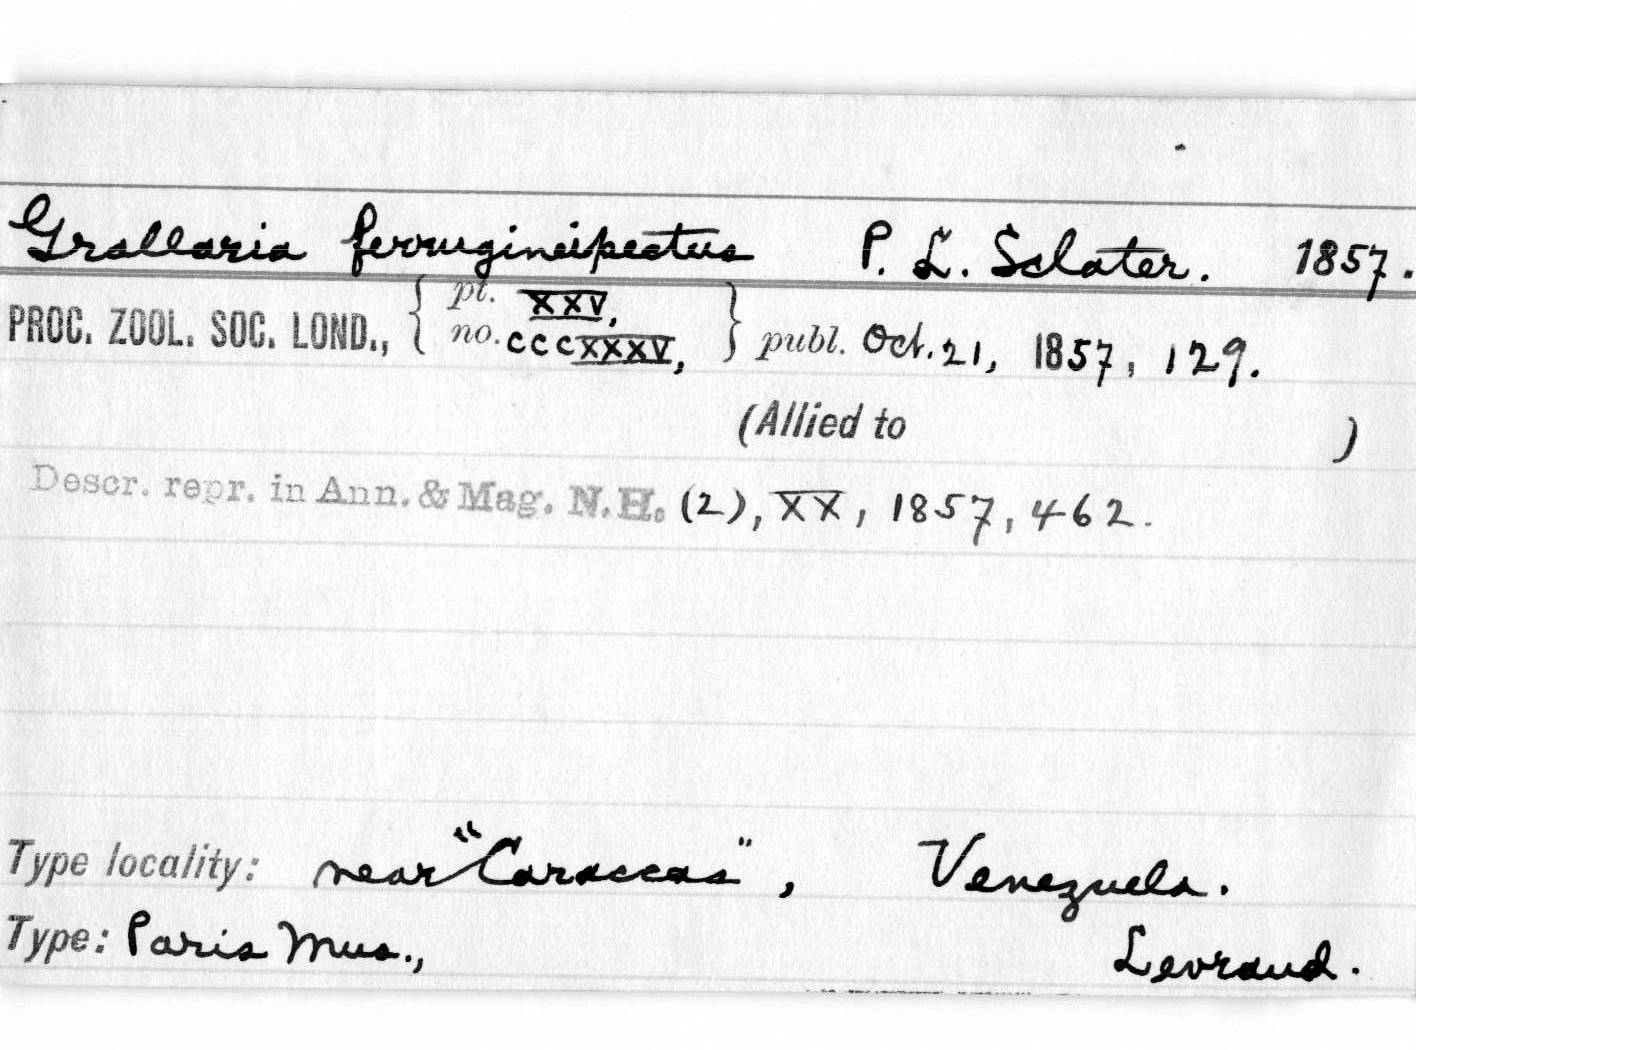 Grallaria ferrugineipectus P. L. Sclater. 1857.
PROC. ZOOL. SOC. LOND., { pt. XXV, no. CCCXXXV, } publ. Oct. 21, 1857, 129.
(Allied to )
Descr. repr. in Ann. & Mag. N.H. (2), XX, 1857, 462.
Type locality: near "Caraccas", Venezuela.
Type: Paris Mus., Levraud.